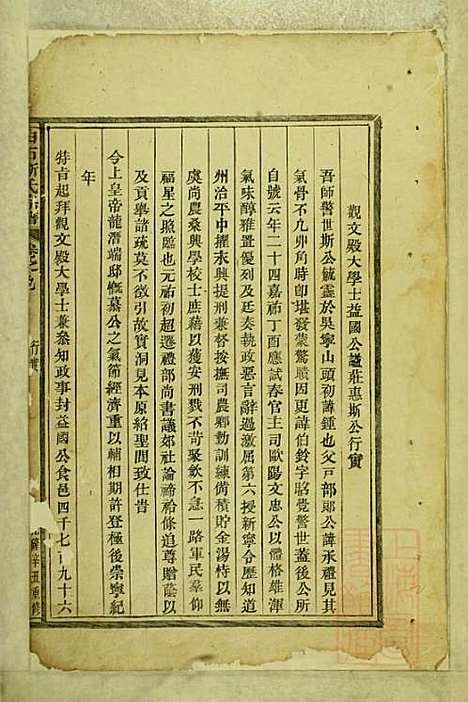 觀文殿大學士益國公諡莊惠斯公行實
吾師警世斯公毓靈於吳寧山頭初諱鍾也父戸部郎公諱承禮見其
氣骨不凡丱角時即堪發蒙驚聵因更諱伯鈴字昭覺警世蓋後公所
自號云年二十四嘉祐丁酉應試春官主司歐陽文忠公以體格雄渾
氣味醇雅置優列及廷奏執政惡言辭過激屈第六授新寧令歷知道
州治平中擢永興提刑兼督按撫司農卿勸訓練僃積貯金湯恃以無
虞尚農桑興學校士庶藉以獲安刑戮不苛聚歛不急一路軍民羣仰
福星之照臨也元祐初超遷禮部尚書議郊社論禘祫條追尊贈蔭以
及貢舉諸疏莫不徵引故實洞見本原紿聖間致仕昔
今上皇帝龍潛端邸慨慕公之氣節經濟重以輔相期許登極後崇寧紀
年
特旨起拜觀文殿大學士兼叅知政事封益國公食邑四千七百九十六
斯氏
行實
辛丑重修